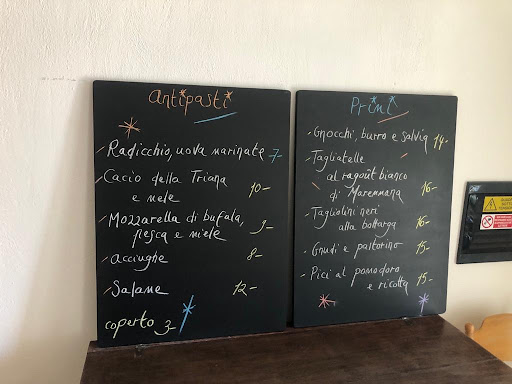 Antipasti
Radicchio, uova marinate 7-
Cacio della Triana
e mele 10-
Mozzarella di bufala,
pesca e miele
acciughe 8-
Salame 12-
coperto 3-
Primi
Gnocchi, burro e salvia 14-
Tagliatelle
al ragoût bianco
di Maremmana 16-
Tagliolini neri
alla bottarga 16-
Gnudi e paltorino 15-
Pici al pomodoro
e ricotta 15-